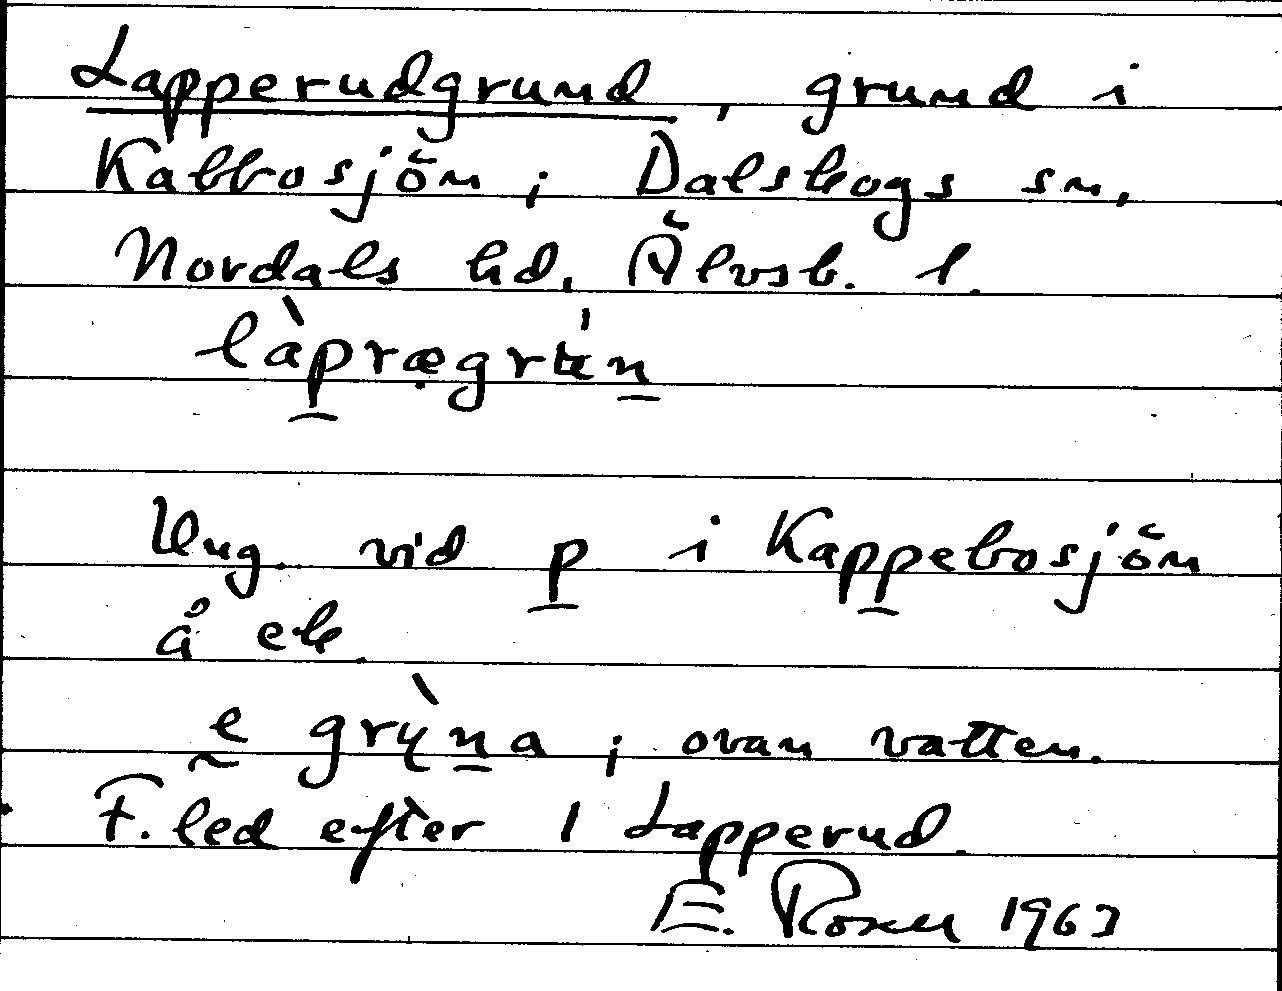 Lapperudgrund, grund i
Kabbosjön i Dalskogs sn,
Nordals hd, Älvsb. l.
làprægrʉ́n
Ung. vid p i Kappebosjön
å ek.
e grỳna; ovan vatten.
F. led efter 1 Lapperud.
E. Rosell 1963